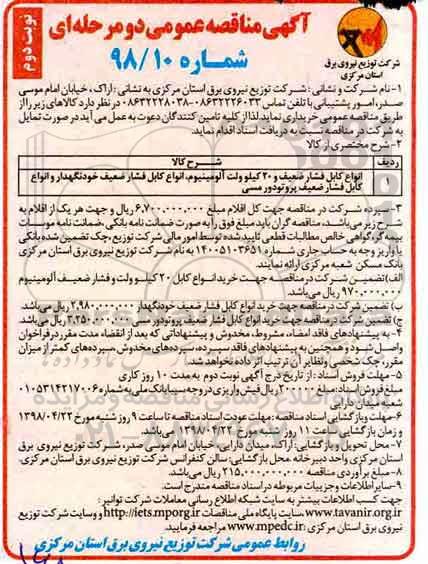 نوبت دوم
آگهی مناقصه عمومی دو مرحله ای
شماره ۹۸/۱۰
شرکت توزیع نیروی برق
استان مرکزی
۱- نام شرکت و نشانی: شرکت توزیع نیروی برق استان مرکزی به نشانی: اراک، خیابان امام موسی
صدر، امور پشتیبانی با تلفن تماس ۰۸۶۳۲۲۲۶۰۳۳-۰۸۶۳۲۲۲۸۰۳۸ در نظر دارد کالاهای زیر را از
طریق مناقصه عمومی خریداری نماید لذا از کلیه تامین کنندگان دعوت به عمل می آید در صورت تمایل
به شرکت در مناقصه نسبت به دریافت اسناد اقدام نمایند.
۲- شرح مختصری از کالا
ردیف شرح کالا
۱ انواع کابل فشار ضعیف و ۲۰ کیلو ولت آلومینیوم، انواع کابل فشار ضعیف خودنگهدار و انواع
کابل فشار ضعیف پروتودور مسی
۳- سپرده شرکت در مناقصه جهت کل اقلام مبلغ ۶.۷۰۰.۰۰۰.۰۰۰ ریال و جهت هر یک از اقلام به
شرح زیر می باشد. مناقصه گران باید مبلغ فوق را به صورت ضمانت نامه بانکی، ضمانت نامه موسسات
بیمه گر، گواهی خالص مطالبات قطعی تایید شده توسط امور مالی شرکت توزیع، چک تضمین شده بانکی
یا واریز وجه به حساب جاری شماره ۱۴۰۰۵۱۰۳۶۵۱ به نام شرکت توزیع نیروی برق استان مرکزی
بانک مسکن شعبه مرکزی ارائه نمایند.
الف) تضمین شرکت در مناقصه جهت خرید انواع کابل ۲۰ کیلو ولت و فشار ضعیف آلومینیوم
۹۷۰.۰۰۰.۰۰۰ ریال می باشد.
ب) تضمین شرکت در مناقصه جهت خرید انواع کابل فشار ضعیف خودنگهدار ۲.۹۸۰.۰۰۰.۰۰۰ ریال می باشد.
ج) تضمین شرکت در مناقصه جهت خرید انواع کابل فشار ضعیف پروتودور مسی ۳.۲۵۰.۰۰۰.۰۰۰ ریال می باشد.
۴- به پیشنهادهای فاقد امضاء، مشروط، مخدوش و پیشنهاداتی که بعد از انقضاء مدت مقرر در فراخوان
واصل شود و همچنین به پیشنهادهای فاقد سپرده، سپرده های مخدوش، سپرده های کمتر از میزان
مقرر، چک شخصی و نظایر آن ترتیب اثر داده نخواهد شد.
۵- مهلت فروش اسناد: از تاریخ درج آگهی نوبت دوم به مدت ۱۰ روز کاری
مبلغ فروش اسناد: مبلغ ۲۰۰.۰۰۰ ریال فیش واریزی در وجه سیبا بانک ملی به شماره ۰۱۰۵۳۱۴۲۱۷۰۰۶
شعبه میدان دارایی
۶- مهلت و بازگشایی اسناد مناقصه: مهلت عودت اسناد مناقصه تا ساعت ۹ روز شنبه مورخ ۱۳۹۸/۰۴/۲۲
و زمان بازگشایی ساعت ۱۱ روز شنبه مورخ ۱۳۹۸/۰۴/۲۲ می باشد.
۷- محل تحویل و بازگشایی: اراک، میدان دارایی، خیابان امام موسی صدر، شرکت توزیع نیروی برق
استان مرکزی واحد دبیرخانه، محل بازگشایی: سالن کنفرانس شرکت توزیع نیروی برق استان مرکزی.
۸- مبلغ برآوردی مناقصه ۲۱۵.۰۰۰.۰۰۰.۰۰۰ ریال می باشد.
۹- سایر اطلاعات و جزییات مربوطه در اسناد مناقصه مندرج است.
جهت کسب اطلاعات بیشتر به سایت شبکه اطلاع رسانی معاملات شرکت توانیر:
www.tavanir.org.ir سایت پایگاه ملی مناقصات http://iets.mporg.ir و وبسایت شرکت توزیع
نیروی برق استان مرکزی www.mpedc.ir مراجعه فرمایید.
روابط عمومی شرکت توزیع نیروی برق استان مرکزی